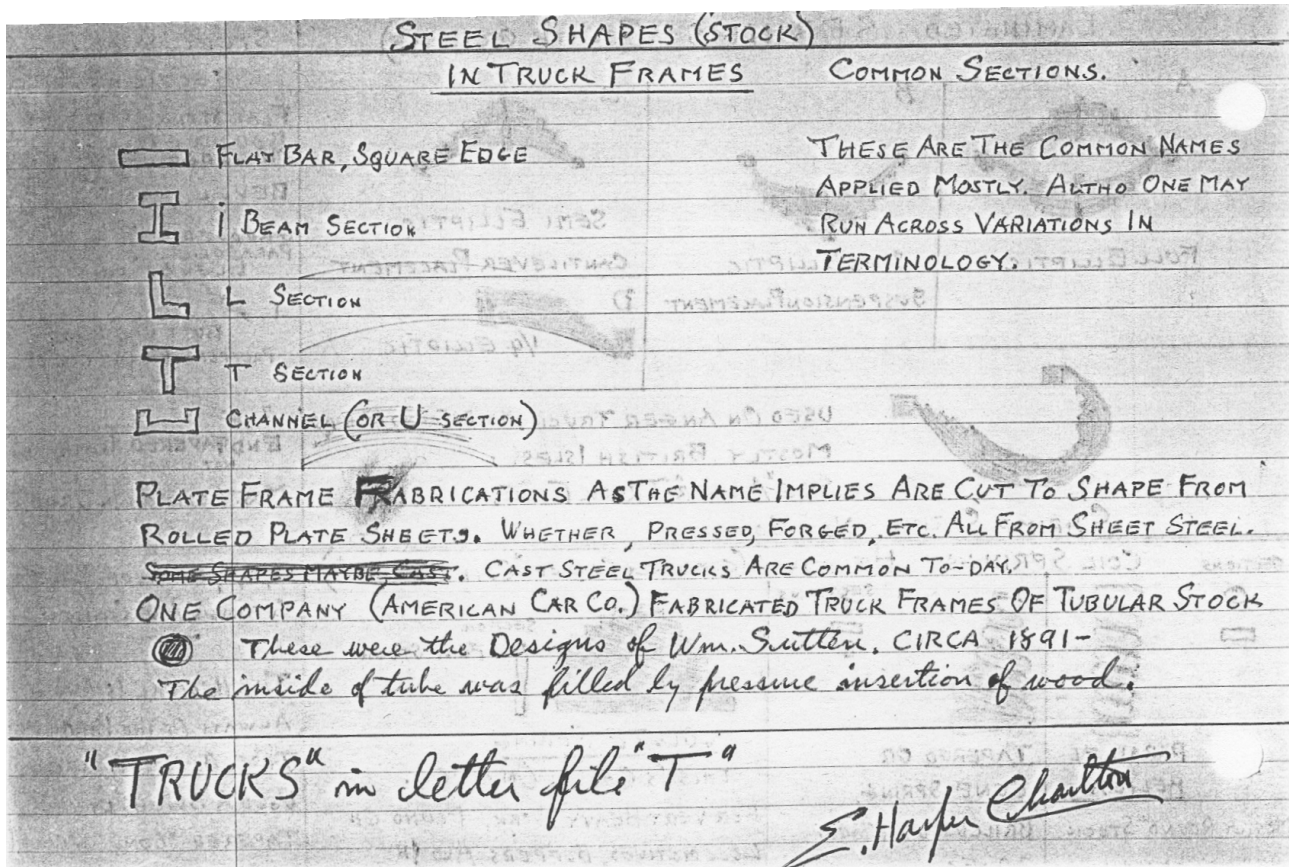 STEEL SHAPES (STOCK)
IN TRUCK FRAMES COMMON SECTIONS.
FLAT BAR, SQUARE EDGE
I BEAM SECTION
L SECTION
T SECTION
CHANNEL (OR U SECTION)
THESE ARE THE COMMON NAMES
APPLIED MOSTLY. ALTHO ONE MAY
RUN ACROSS VARIATIONS IN
TERMINOLOGY.
PLATE FRAME FABRICATIONS AS THE NAME IMPLIES ARE CUT TO SHAPE FROM
ROLLED PLATE SHEETS. WHETHER, PRESSED, FORGED, ETC. ALL FROM SHEET STEEL.
SOME SHAPES MAYBE CAST. CAST STEEL TRUCKS ARE COMMON TO-DAY.
ONE COMPANY (AMERICAN CAR CO.) FABRICATED TRUCK FRAMES OF TUBULAR STOCK
These were the Designs of Wm. Sutten. CIRCA 1891-
The inside of tube was filled by pressure insertion of wood.
"TRUCKS" in letter file "T"
E. Harper Charlton